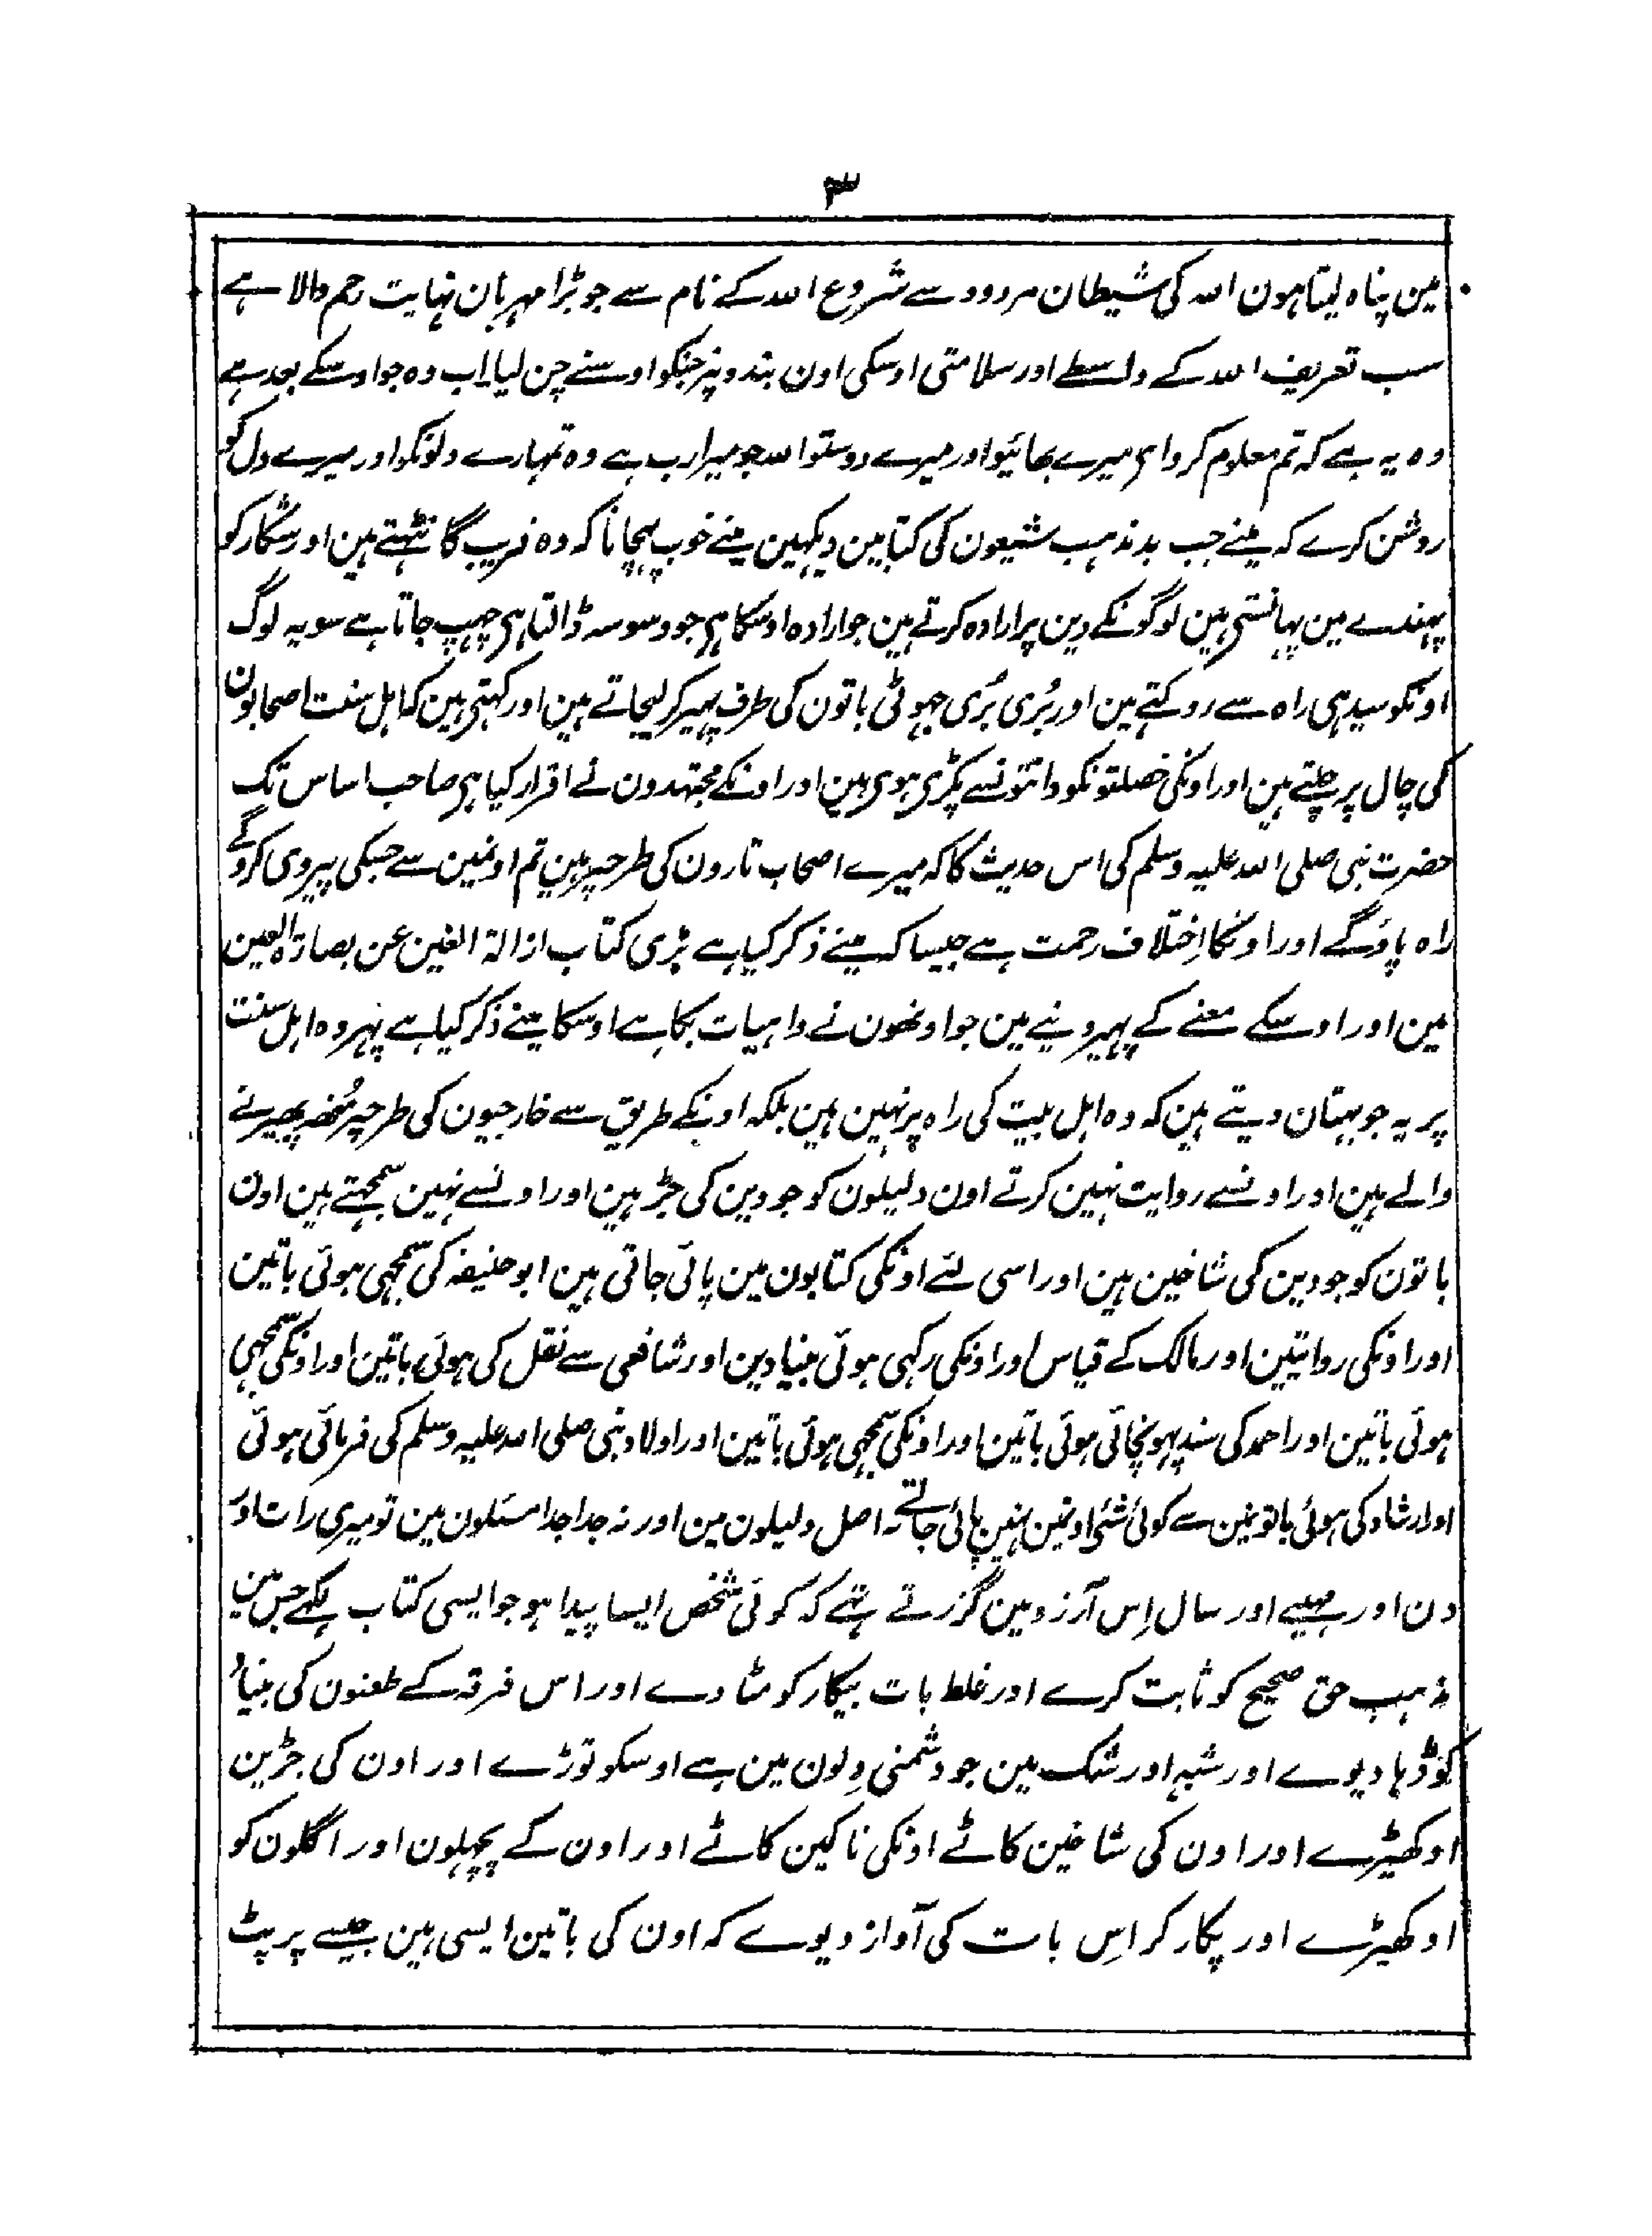 ۳
مین پناہ لیتا ہون اللہ کی شیطان مردود سے شروع اللہ کے نام سے جو بڑا مہربان نہایت رحم والا ہے
سب تعریف اللہ کے واسطے اور سلامتی اوسکی اون بندونپر جنکو اوسنے چن لیا اب وہ جو اوسکے بعد ہے
وہ یہ ہے کہ تم معلوم کرو ای میرے بھائیو اور میرے دوستو اللہ جو میرا رب ہے وہ تمہارے دلونکو اور میرے دل کو
روشن کرے کہ مینے جب بد مذہب شیعون کی کتابین دیکہین مینے خوب پہچانا کہ وہ فریب گانٹہتے ہین اور شکار کو
پہندے مین پہانستی ہین لوگونکے دین پر ارادہ کرتے ہین جو ارادہ اوسکا ہی جو وسوسہ ڈالتا ہی چہپ جاتا ہے سو یہ لوگ
اونکو سیدہی راہ سے روکتے ہین اور بُری بُری جہوٹی باتون کی طرف پہیر کر لیجاتے ہین اور کہتی ہین کہ اہل سنت اصحابون
کی چال پر چلتے ہین اور اونکی خصلتونکو دانتونسے پکڑی ہوی ہین اور اونکے مجتہدون نے اقرار کیا ہی صاحب اساس تک
حضرت نبی صلی اللہ علیہ وسلم کی اس حدیث کا کہ میرے اصحاب تارون کی طرحپر ہین تم اونمین سے جسکی پیروی کروگے
راہ پاؤگے اور اونکا اِختلاف رحمت ہے جیسا کہ مینے ذکر کیا ہے بڑی کتاب ازالۃ الغین عن بصارۃ العین
مین اور اوسکے معنے کے پہیر دینے مین جو اونھون نے واہیات بکا ہے اوسکا مینے ذکر کیا ہے پہر وہ اہل سنت
پر یہ جو بہتان دیتے ہین کہ وہ اہل بیت کی راہ پر نہین ہین بلکہ اونکے طریق سے خارجیون کی طرحپر مُنھ پھیرنے
والے ہین اور اونسے روایت نہین کرتے اون دلیلون کو جو دین کی جڑ ہین اور اونسے نہین سمجہتے ہین اون
باتون کو جو دین کی شاخین ہین اور اسی لئے اونکی کتابون مین پائی جاتی ہین ابو حنیفہ کی سمجہی ہوئی باتین
اور اونکی روایتین اور مالک کے قیاس اور اونکی رکہی ہوئی بنیادین اور شافعی سے نقل کی ہوئی باتین اور اونکی سمجہی
ہوئی باتین اور احمد کی سند پہونچائی ہوئی باتین اور اونکی سمجہی ہوئی باتین اور اولاد نبی صلی اللہ علیہ وسلم کی فرمائی ہوئی
اور ارشاد کی ہوئی باتونمین سے کوئی شئی اونمین نہین پائی جاتے نہ اصل دلیلون مین اور نہ جدا جدا مسئلون مین تو میری رات اور
دن اور مہینے اور سال اِس آرزو مین گزرتے تہے کہ کوئی شخص ایسا پیدا ہو جو ایسی کتاب لکہے جس مین
مذہب حق صحیح کو ثابت کرے اور غلط بات بیکار کو مٹا دے اور اس فرقہ کے طعنون کی بنیاد
کو ڈہا دیوے اور شبہ اور شک مین جو دشمنی دِلون مین ہے اوسکو توڑے اور اون کی جڑین
اوکھیڑے اور اون کی شاخین کاٹے اونکی ناکین کاٹے اور اون کے پچہلون اور اگلون کو
اوکھیڑے اور پکار کر اِس بات کی آواز دیوے کہ اون کی باتین ایسی ہین جیسے پر پٹ